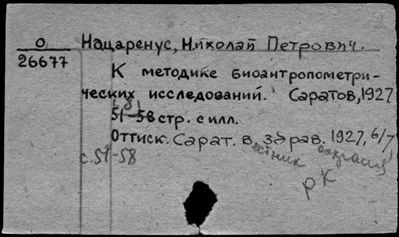 О Нацаренус, Николай Петрович.
26677
К методике биоантропометри-
ческих исследований. Саратов, 1927
[8]
51-58 стр. с илл.
Оттиск. Сарат. вестник здрав. 1927, 6/7,
с. 51-58
рК